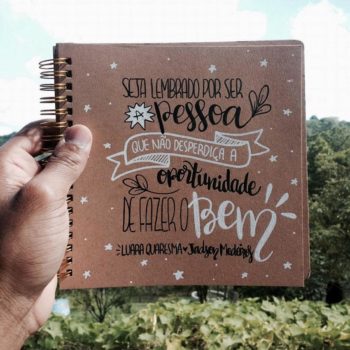 SEJA LEMBRADO POR SER
A pessoa
QUE NÃO DESPERDIÇA A
oportunidade
DE FAZER O Bem
LUARA QUARESMA ♥ Jadson Medeiros